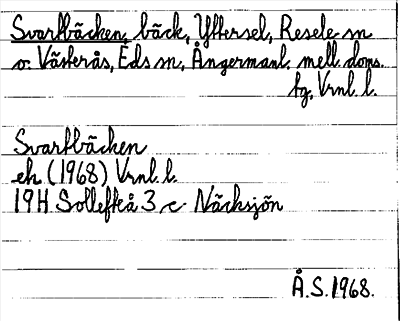 Svartbäcken, bäck, Yttersel, Resele sn
o. Västerås, Eds sn, Ångermanl. mell. doms.
tg, Vrnl. l.
Svartbäcken
ek (1968) Vrnl. l.
19H Sollefteå 3 c Näcksjön
Å.S. 1968.